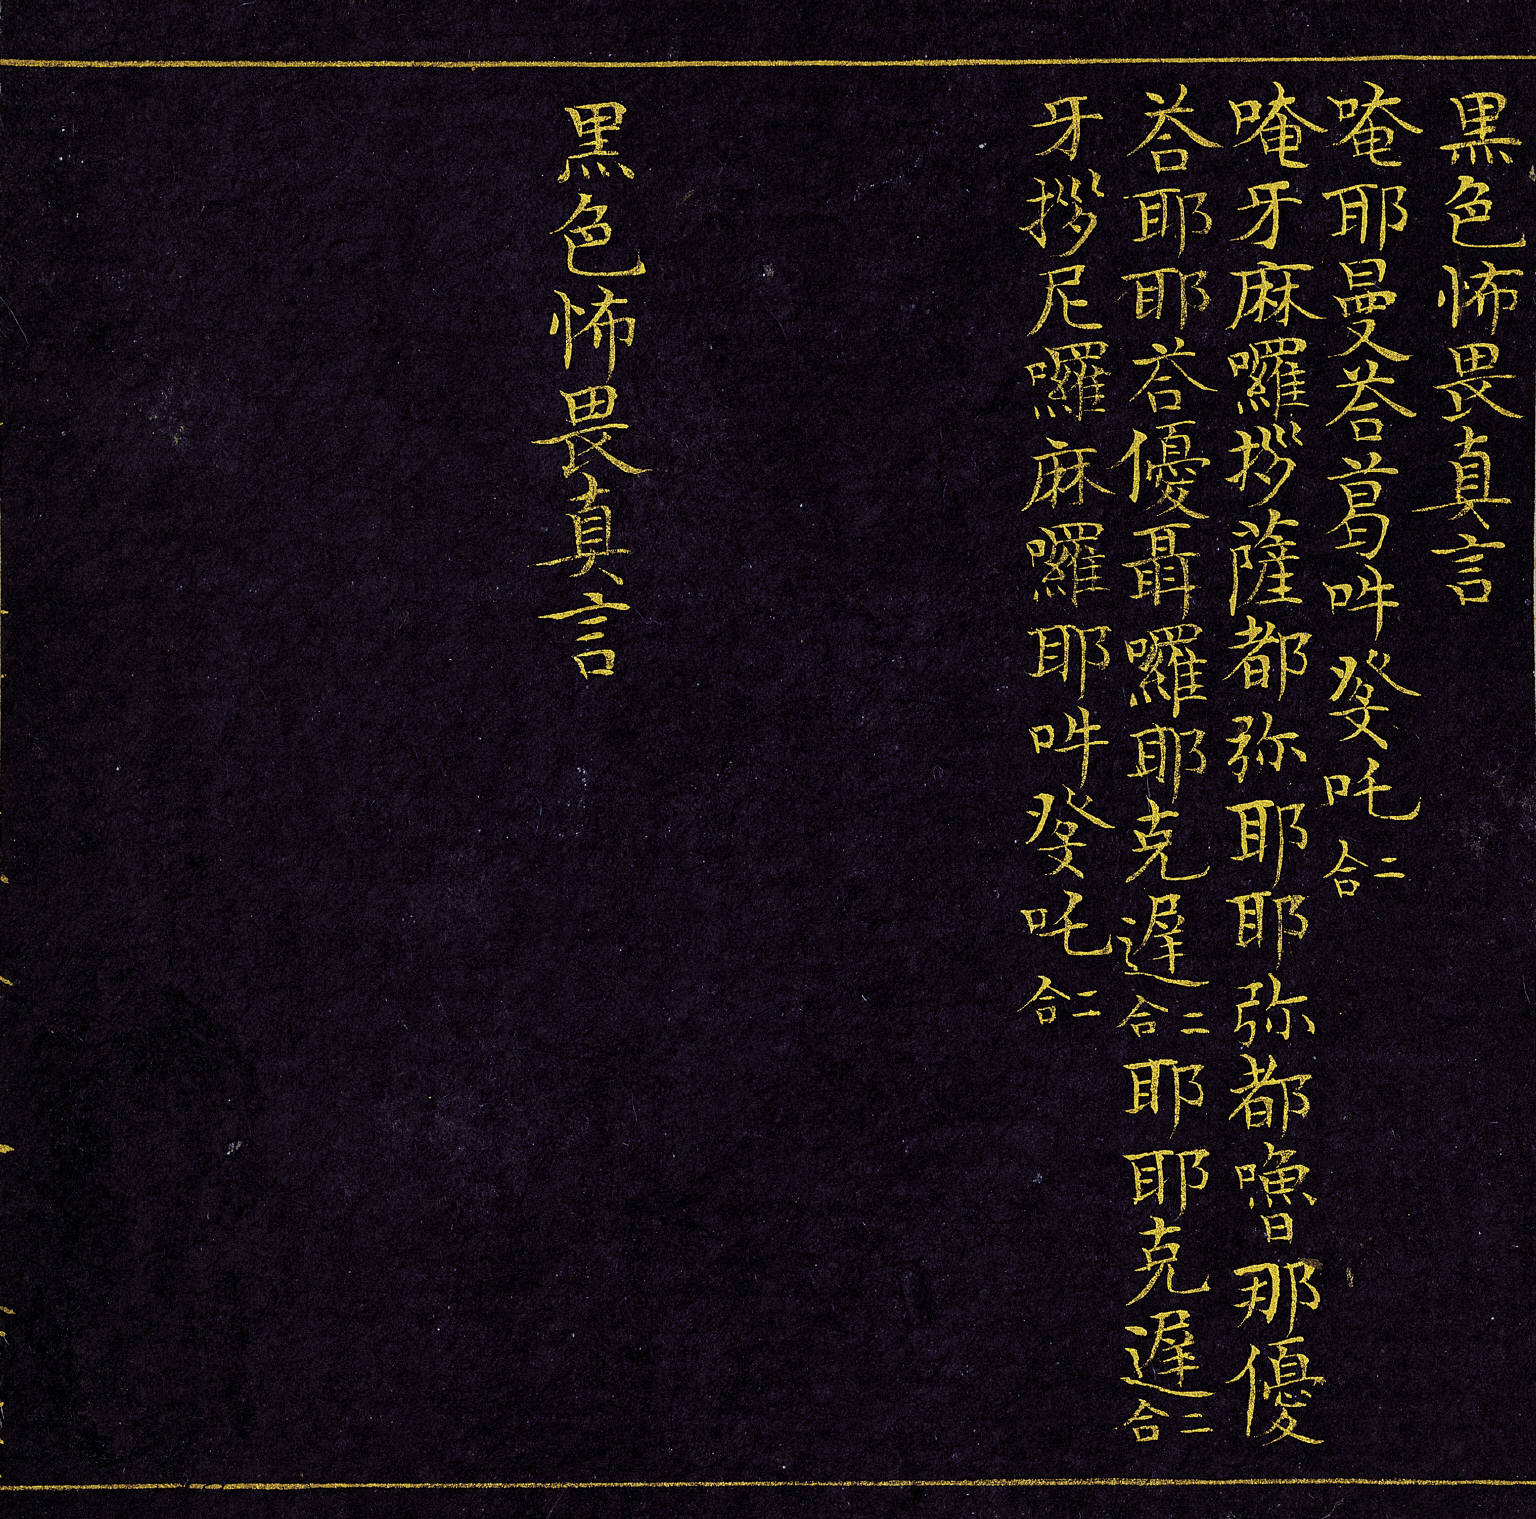 黒色怖畏真言
唵耶曼荅葛吽癹吒二合
唵牙麻囉拶薩都弥耶耶弥都嚕那優
荅耶耶荅優聶囉耶克遲二合耶耶克遲二合
牙拶尼囉麻囉耶吽癹吒二合
黒色怖畏真言